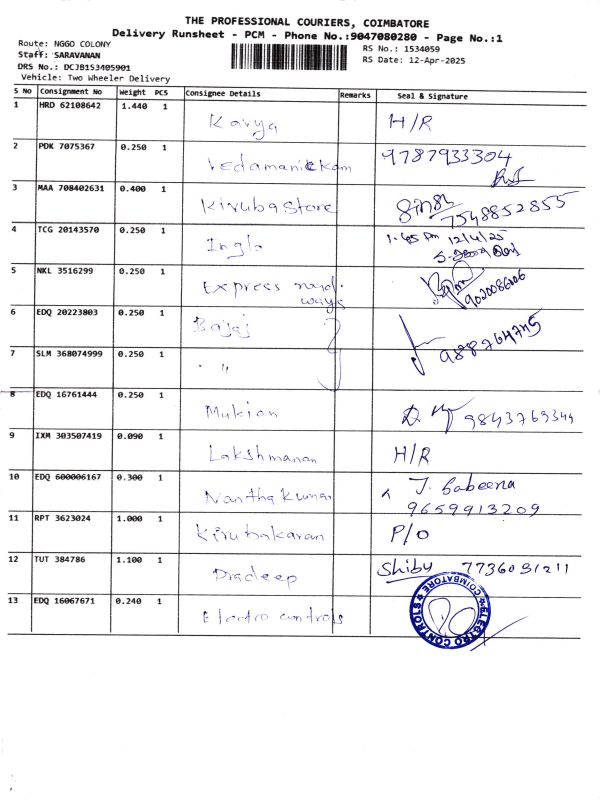 THE PROFESSIONAL COURIERS, COIMBATORE
Delivery Runsheet - PCM - Phone No.:9047080280 - Page No.:1
Route: NGGO COLONY
Staff: SARAVANAN
DRS No.: DCJB153405901
Vehicle: Two Wheeler Delivery
RS No.: 1534059
RS Date: 12-Apr-2025
S No Consignment No Weight PCS Consignee Details Remarks Seal & Signature
1 HRD 62108642 1.440 1 Kavya H/R
2 PDK 7075367 0.250 1 Vedamanickam 9787933304
3 MAA 708402631 0.400 1 Kiruba Store 7548852855
4 TCG 20143570 0.250 1 Inglo 12/4/25
5 NKL 3516299 0.250 1 Express road ways
6 EDQ 20223803 0.250 1 Bajaj
7 SLM 368074999 0.250 1 " "
8 EDQ 16761444 0.250 1 Mukian 9843769344
9 IXM 303507419 0.090 1 Lakshmanan H/R
10 EDQ 600006167 0.300 1 Nantha Kumar J. Sabeena
9659913209
11 RPT 3623024 1.000 1 Kirubakaran P/O
12 TUT 384786 1.100 1 Pradeep Shiby 7736091211
13 EDQ 16067671 0.240 1 Electro controls
ELECTRO CONTROLS COIMBATORE